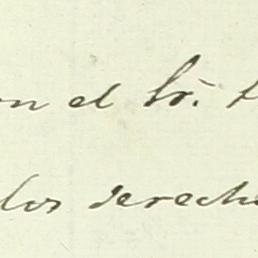 on el Sr.
los derech